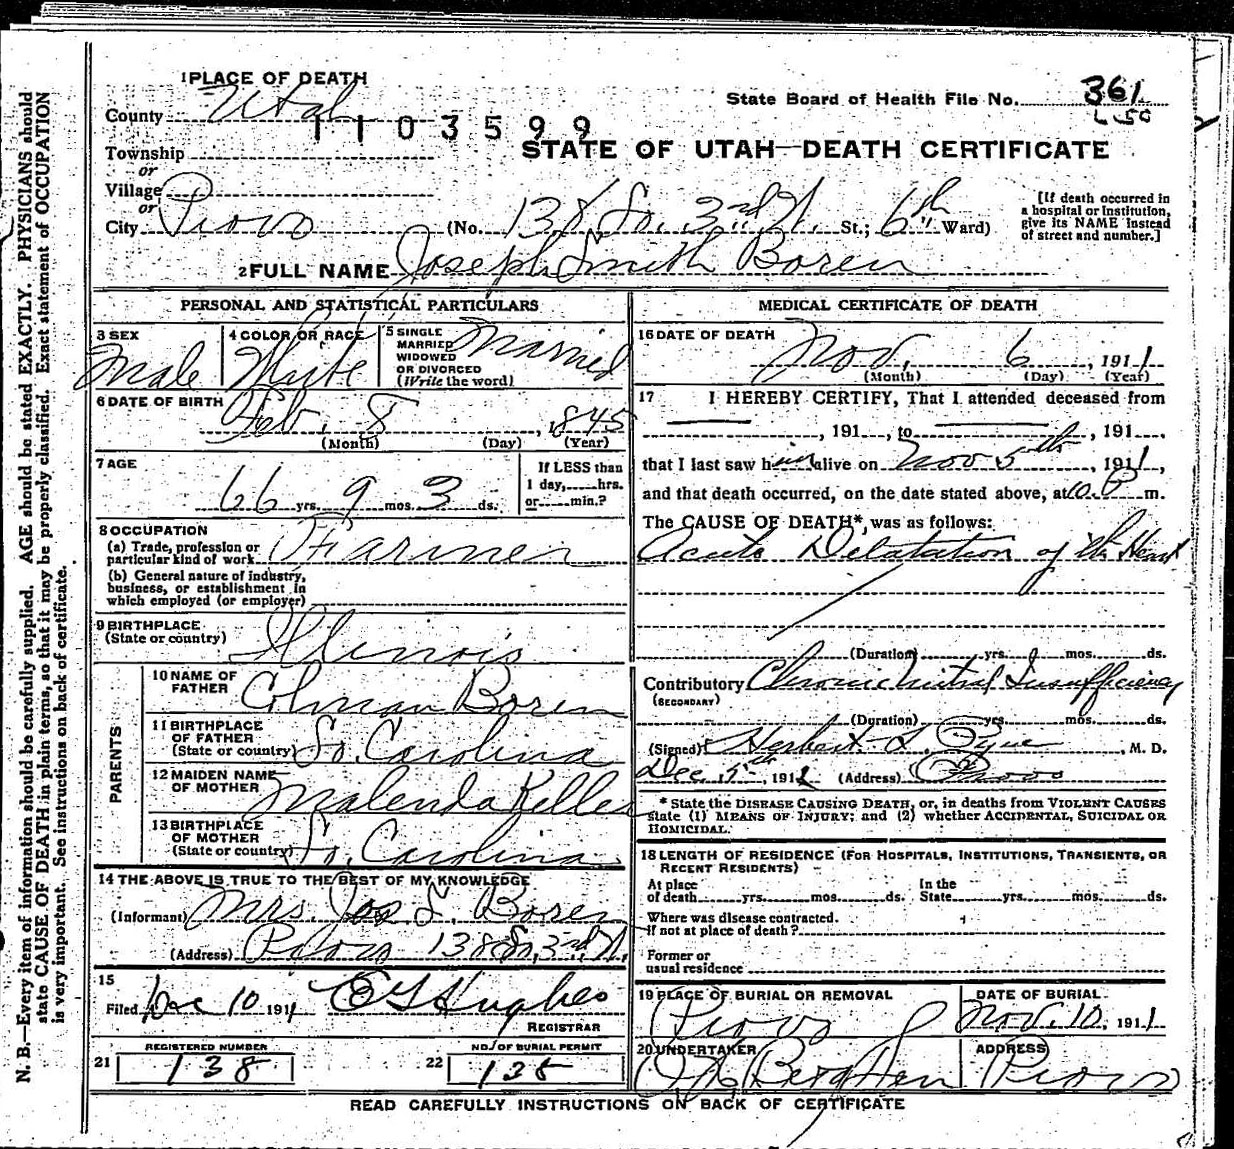 N. B.—Every item of information should be carefully supplied. AGE should be stated EXACTLY. PHYSICIANS should
state CAUSE OF DEATH in plain terms, so that it may be properly classified. Exact statement of OCCUPATION
is very important. See instructions on back of certificate.
1 PLACE OF DEATH
County Utah
State Board of Health File No. 361
1103599
Township
or
Village
or
City Provo
STATE OF UTAH—DEATH CERTIFICATE
(No. 138 So. 3rd W. St.; 6th Ward)
[If death occurred in
a hospital or institution,
give its NAME instead
of street and number.]
2 FULL NAME Joseph Smith Boren
PERSONAL AND STATISTICAL PARTICULARS
3 SEX
Male
4 COLOR OR RACE
White
5 SINGLE
MARRIED
WIDOWED
OR DIVORCED
(Write the word)
Married
6 DATE OF BIRTH
Feb. 8, 1845
(Month) (Day) (Year)
7 AGE
66 yrs. 9 mos. 3 ds.
If LESS than
1 day, hrs.
or min.?
8 OCCUPATION
(a) Trade, profession or
particular kind of work Farmer
(b) General nature of industry,
business, or establishment in
which employed (or employer)
9 BIRTHPLACE
(State or country) Illinois
PARENTS
10 NAME OF
FATHER Colman Boren
11 BIRTHPLACE
OF FATHER
(State or country) So. Carolina
12 MAIDEN NAME
OF MOTHER Malenda Keller
13 BIRTHPLACE
OF MOTHER
(State or country) So. Carolina
14 THE ABOVE IS TRUE TO THE BEST OF MY KNOWLEDGE
(Informant) Mrs. Jos S. Boren
(Address) Provo 138 So. 3rd W.
15
Filed Dec 10 1911
E G Hughes
REGISTRAR
REGISTERED NUMBER
21 138
NO. OF BURIAL PERMIT
22 128
MEDICAL CERTIFICATE OF DEATH
16 DATE OF DEATH
Nov. 6, 1911
(Month) (Day) (Year)
17 I HEREBY CERTIFY, That I attended deceased from
, 191 , to , 191 ,
that I last saw him alive on Nov 5th, 1911,
and that death occurred, on the date stated above, at 10 P m.
The CAUSE OF DEATH*, was as follows:
Acute Dilatation of the Heart
(Duration) yrs. mos. ds.
Contributory Chronic Mitral Insufficiency
(SECONDARY)
(Duration) yrs. mos. ds.
(Signed) Herbert S. Pyne, M. D.
Dec 5th, 1911 (Address) Provo
* State the DISEASE CAUSING DEATH, or, in deaths from VIOLENT CAUSES
state (1) MEANS OF INJURY; and (2) whether ACCIDENTAL, SUICIDAL OR
HOMICIDAL.
18 LENGTH OF RESIDENCE (FOR HOSPITALS, INSTITUTIONS, TRANSIENTS, OR
RECENT RESIDENTS)
At place
of death yrs. mos. ds.
In the
State yrs. mos. ds.
Where was disease contracted.
if not at place of death?
Former or
usual residence
19 PLACE OF BURIAL OR REMOVAL
Provo
DATE OF BURIAL
Nov. 10, 1911
20 UNDERTAKER
ADDRESS
Provo
READ CAREFULLY INSTRUCTIONS ON BACK OF CERTIFICATE